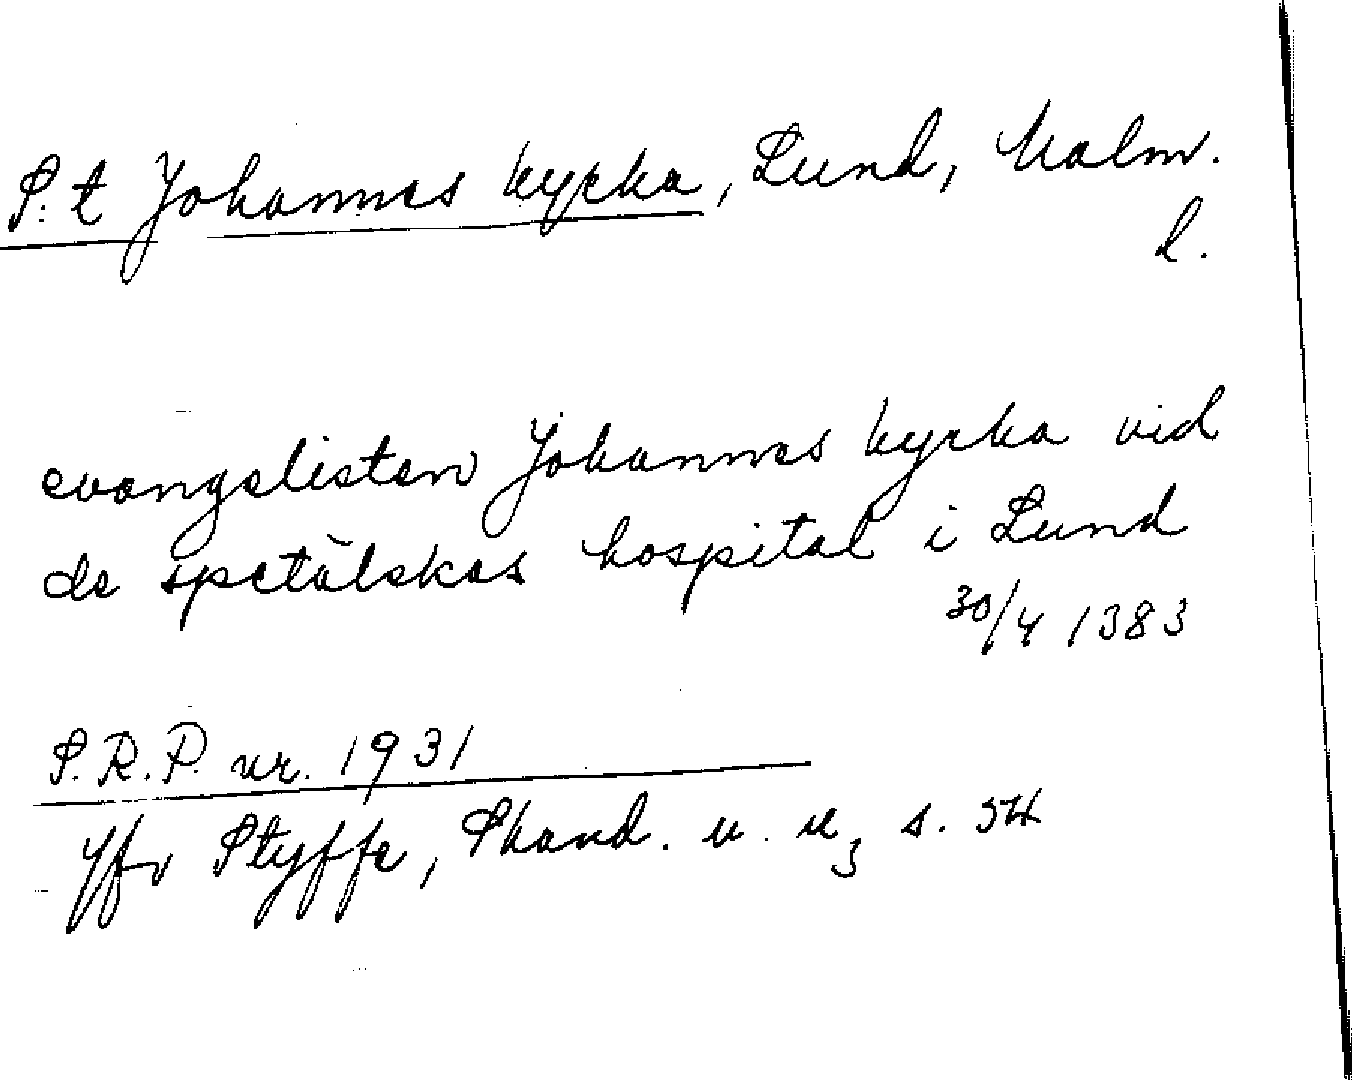 S:t Johannes kyrka, Lund, Malm.
l.
evangelisten Johannes kyrka vid
de spetälskas hospital i Lund
30/4 1383
S.R.P. nr. 1931
Jfr Styffe, Skand. u. u3 s. 54